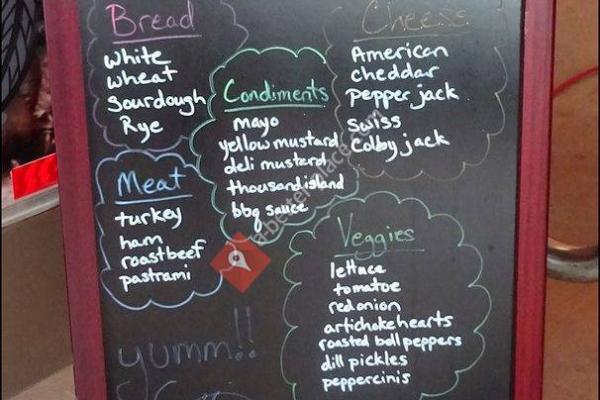 Bread
white
wheat
Sourdough
Rye
Cheese
American
cheddar
pepper jack
Swiss
Colby jack
Condiments
mayo
yellow mustard
deli mustard
thousand island
bbq sauce
Meat
turkey
ham
roast beef
pastrami
Veggies
lettuce
tomatoe
red onion
artichoke hearts
roasted bell peppers
dill pickles
peppercinis
yumm!!
a-better-place.com